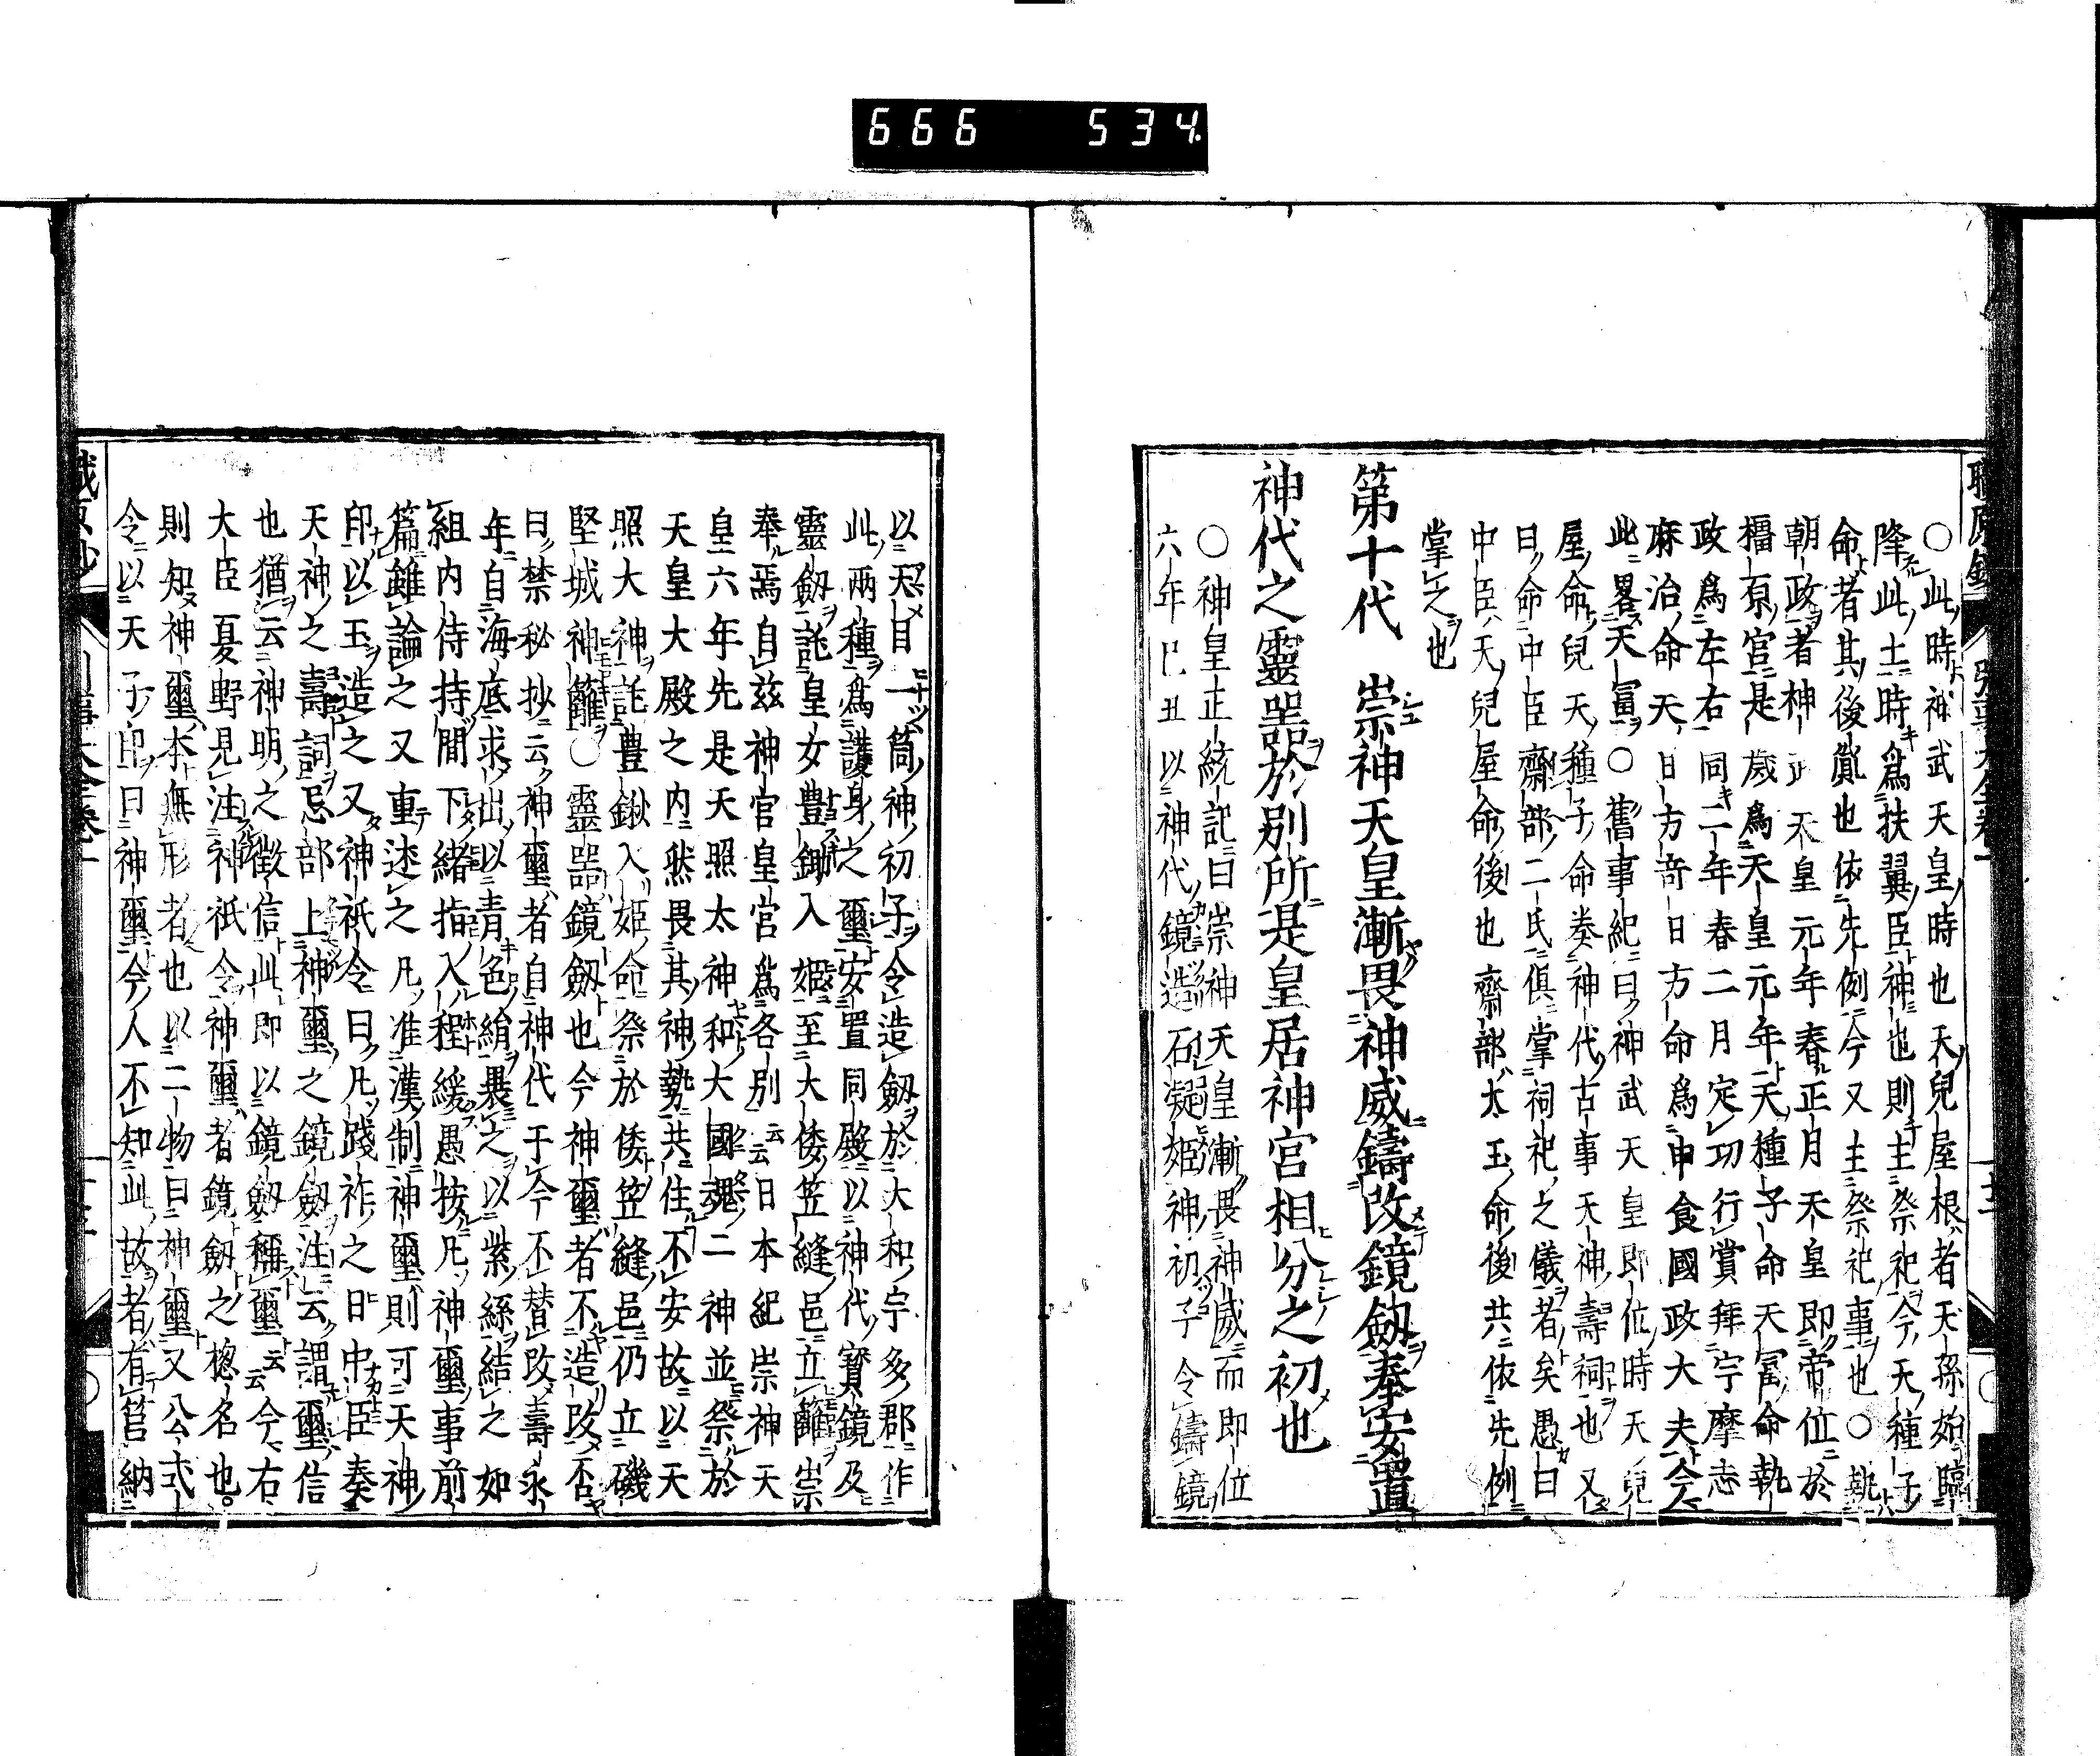 666 534
○此時神武天皇時也天兒屋根者天孫始臨
降此土時爲扶翼臣神也則主祭祀今天種子
命者其後胤也依先例今又主祭祀事也○執
朝政者神武天皇元年春正月天皇即帝位於
橿原宮是歲爲天皇元年天種子命天富命執
政爲左右同二年春二月定功行賞拜宇摩志
麻治命天日方奇日方命爲申食國政大夫今
此畧天冨○舊事紀曰神武天皇即位時天兒
屋命兒天種子命奏神代古事天神壽詞也又
曰命中臣齋部二氏俱掌祠祀之儀者矣愚曰
中臣天兒屋命後也齋部太玉命後共依先例
掌之也
第十代 崇神天皇漸畏神威鑄改鏡劔奉安置
神代之靈器於別所是皇居神宮相分之初也
○神皇正統記曰崇神天皇漸畏神威而即位
六年己丑以神代鏡造石凝姫神初子令鑄鏡
以天目一箇神初子令造劔於大和宇多郡作
此兩種爲護身之璽安置同殿以神代寶鏡及
靈劔託皇女豊鋤入姫至大倭笠縫邑立籬崇
奉焉自茲神宮皇宮爲各別云云日本紀崇神天
皇六年先是天照太神和大國魂二神並祭於
天皇大殿之内然畏其神勢共住不安故以天
照大神託豊鍬入姫命祭於倭笠縫邑仍立磯
堅城神籬○靈器鏡劔也今神璽者不造改否
曰禁秘抄云神璽者自神代于今不替改壽永
年自海底求出以青色絹褁之以紫絲結之如
組内侍持間下緒指入程緩愚按凡神璽事前
篇雖論之又重述之凡准漢制神璽則可天神
印以玉造之又神祇令曰凡踐祚之日中臣奏
天神之壽詞忌部上神璽之鏡劔注云謂璽信
也猶云神明之徵信此即以鏡劔稱璽云云今右
大臣夏野見注神祇令神璽者鏡劔之檧名也
則知神璽本無形者也以二物曰神璽又公式
令以天子印曰神璽今人不知此故者有筥納